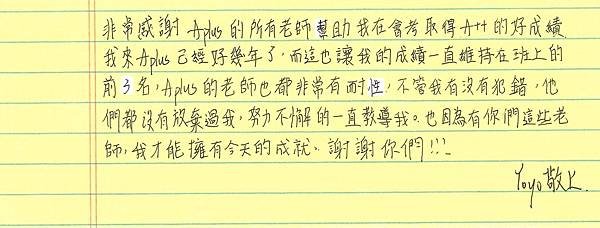 非常感謝Aplus的所有老師幫助我在會考取得A++的好成績
我來Aplus已經好幾年了,而這也讓我的成績一直維持在班上的
前3名,Aplus的老師也都非常有耐性,不管我有沒有犯錯,他
們都沒有放棄過我,努力不懈的一直教導我。也因為有你們這些老
師,我才能擁有今天的成就、謝謝你們!!!
Yoyo敬上.